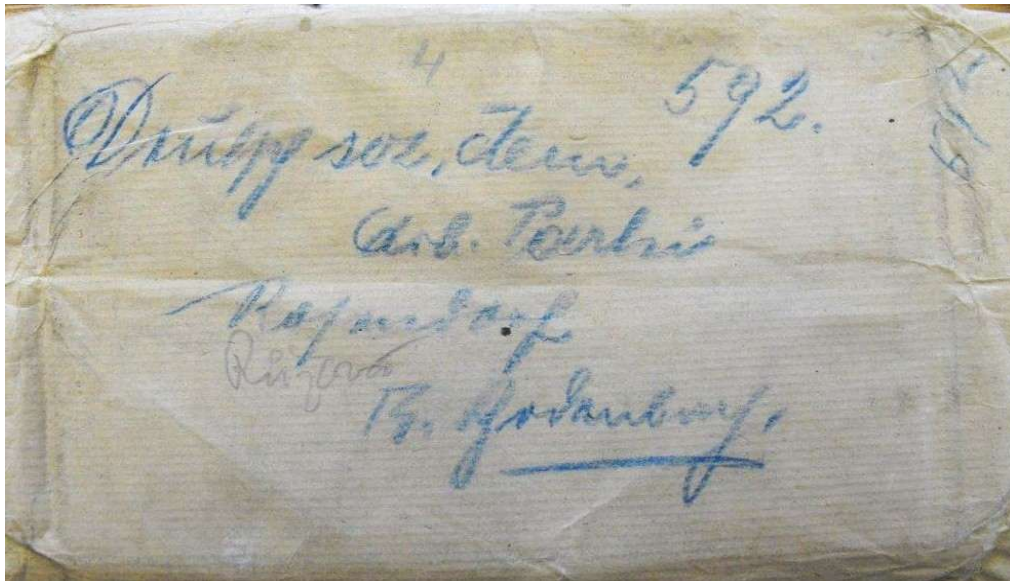 4
592.
Deutsch soc. dem.
Arb. Partei
Rosendorf
Růžová
Bodenbach.